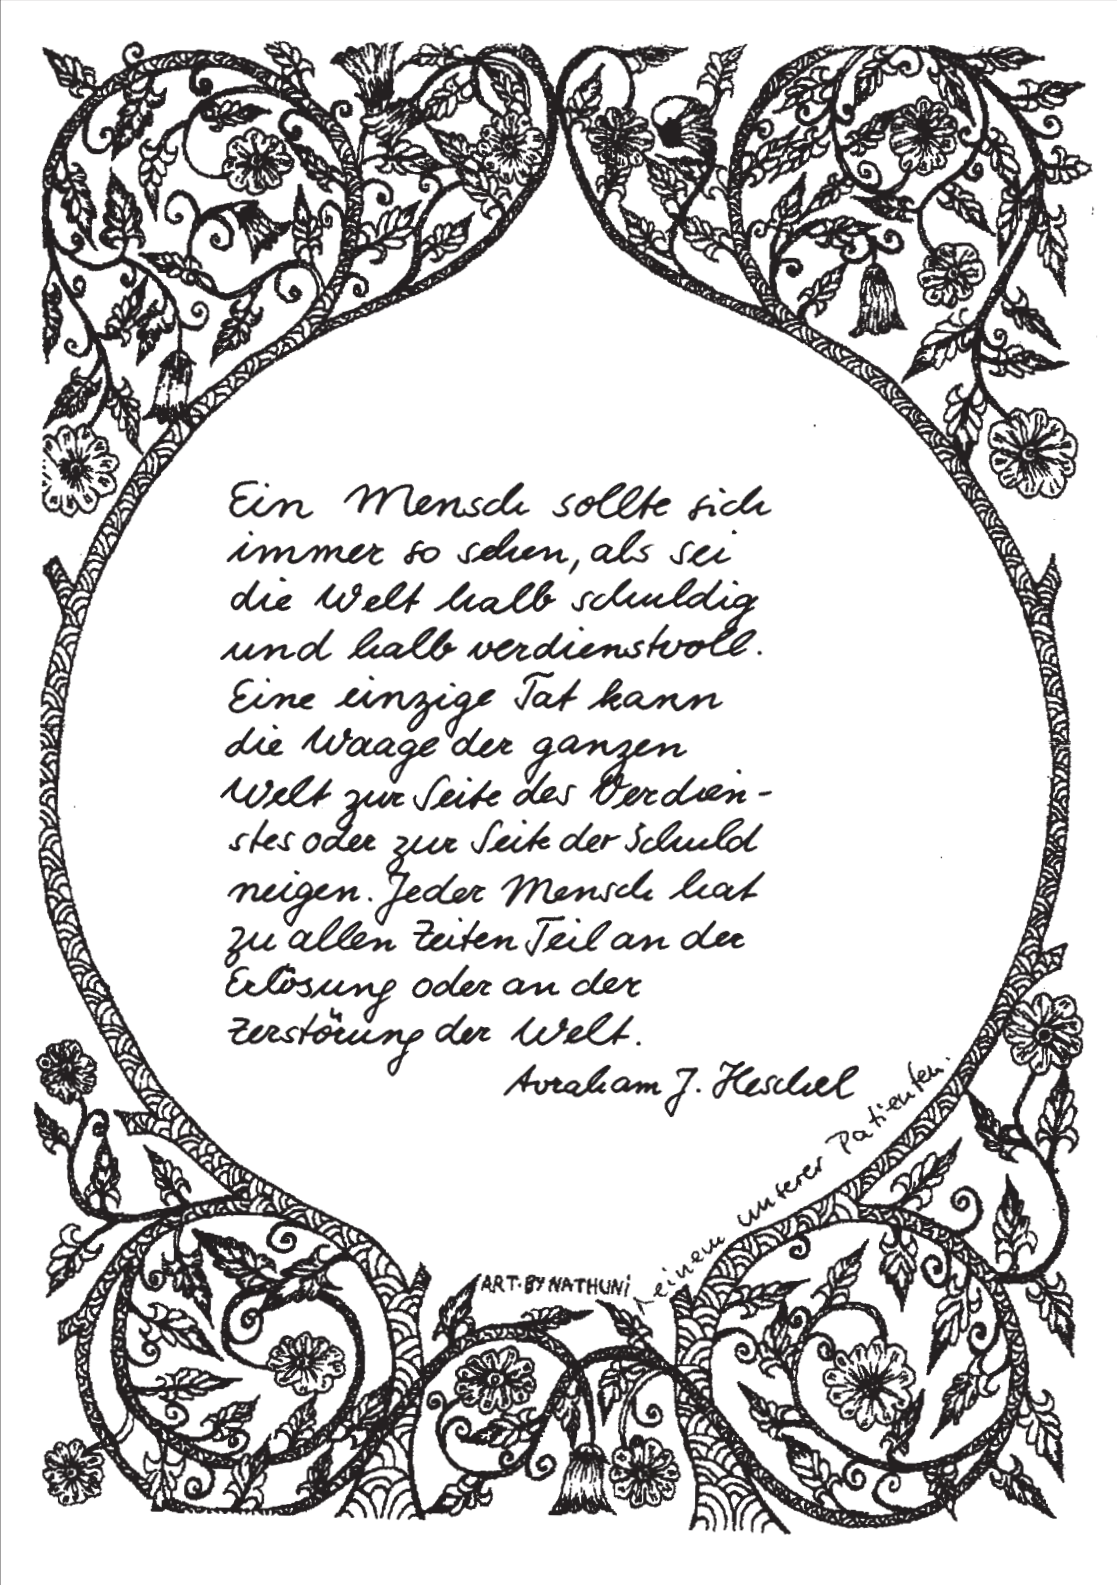 Ein Mensch sollte sich
immer so sehen, als sei
die Welt halb schuldig
und halb verdienstvoll.
Eine einzige Tat kann
die Waage der ganzen
Welt zur Seite des Verdien-
stes oder zur Seite der Schuld
neigen. Jeder Mensch hat
zu allen Zeiten Teil an der
Erlösung oder an der
Zerstörung der Welt.
Avraham J. Heschel
ART·BY NATHUNi
einem unserer Patienten.